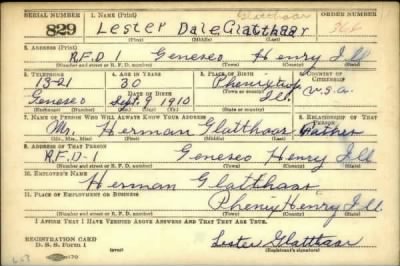 SERIAL NUMBER 1. NAME (Print) Glatthaar
829 Lester Dale Glatthaar
(First) (Middle) (Last)
2. ADDRESS (Print)
R.F.D 1 Geneseo Henry Ill
(Number and street or R. F. D. number) (Town) (County) (State)
3. TELEPHONE 4. AGE IN YEARS 5. PLACE OF BIRTH 6. COUNTRY OF CITIZENSHIP
13-21 30 Phenix twp.
Geneseo DATE OF BIRTH Sept. 9 1910 Ill. U.S.a.
(Town or county)
(Exchange) (Number) (Mo.) (Day) (Yr.) (State or country)
7. NAME OF PERSON WHO WILL ALWAYS KNOW YOUR ADDRESS 8. RELATIONSHIP OF THAT PERSON
Mr. Herman Glatthaar Father
(Mr., Mrs., Miss) (First) (Middle) (Last)
9. ADDRESS OF THAT PERSON
R.F.D-1 Geneseo Henry Ill
(Number and street or R. F. D. number) (Town) (County) (State)
10. EMPLOYER'S NAME
Herman Glatthaar
11. PLACE OF EMPLOYMENT OR BUSINESS
Phenix Henry Ill.
(Number and street or R. F. D. number) (Town) (County) (State)
I AFFIRM THAT I HAVE VERIFIED ABOVE ANSWERS AND THAT THEY ARE TRUE.
REGISTRATION CARD
D. S. S. Form 1 Lester Glatthaar
(Registrant's signature)